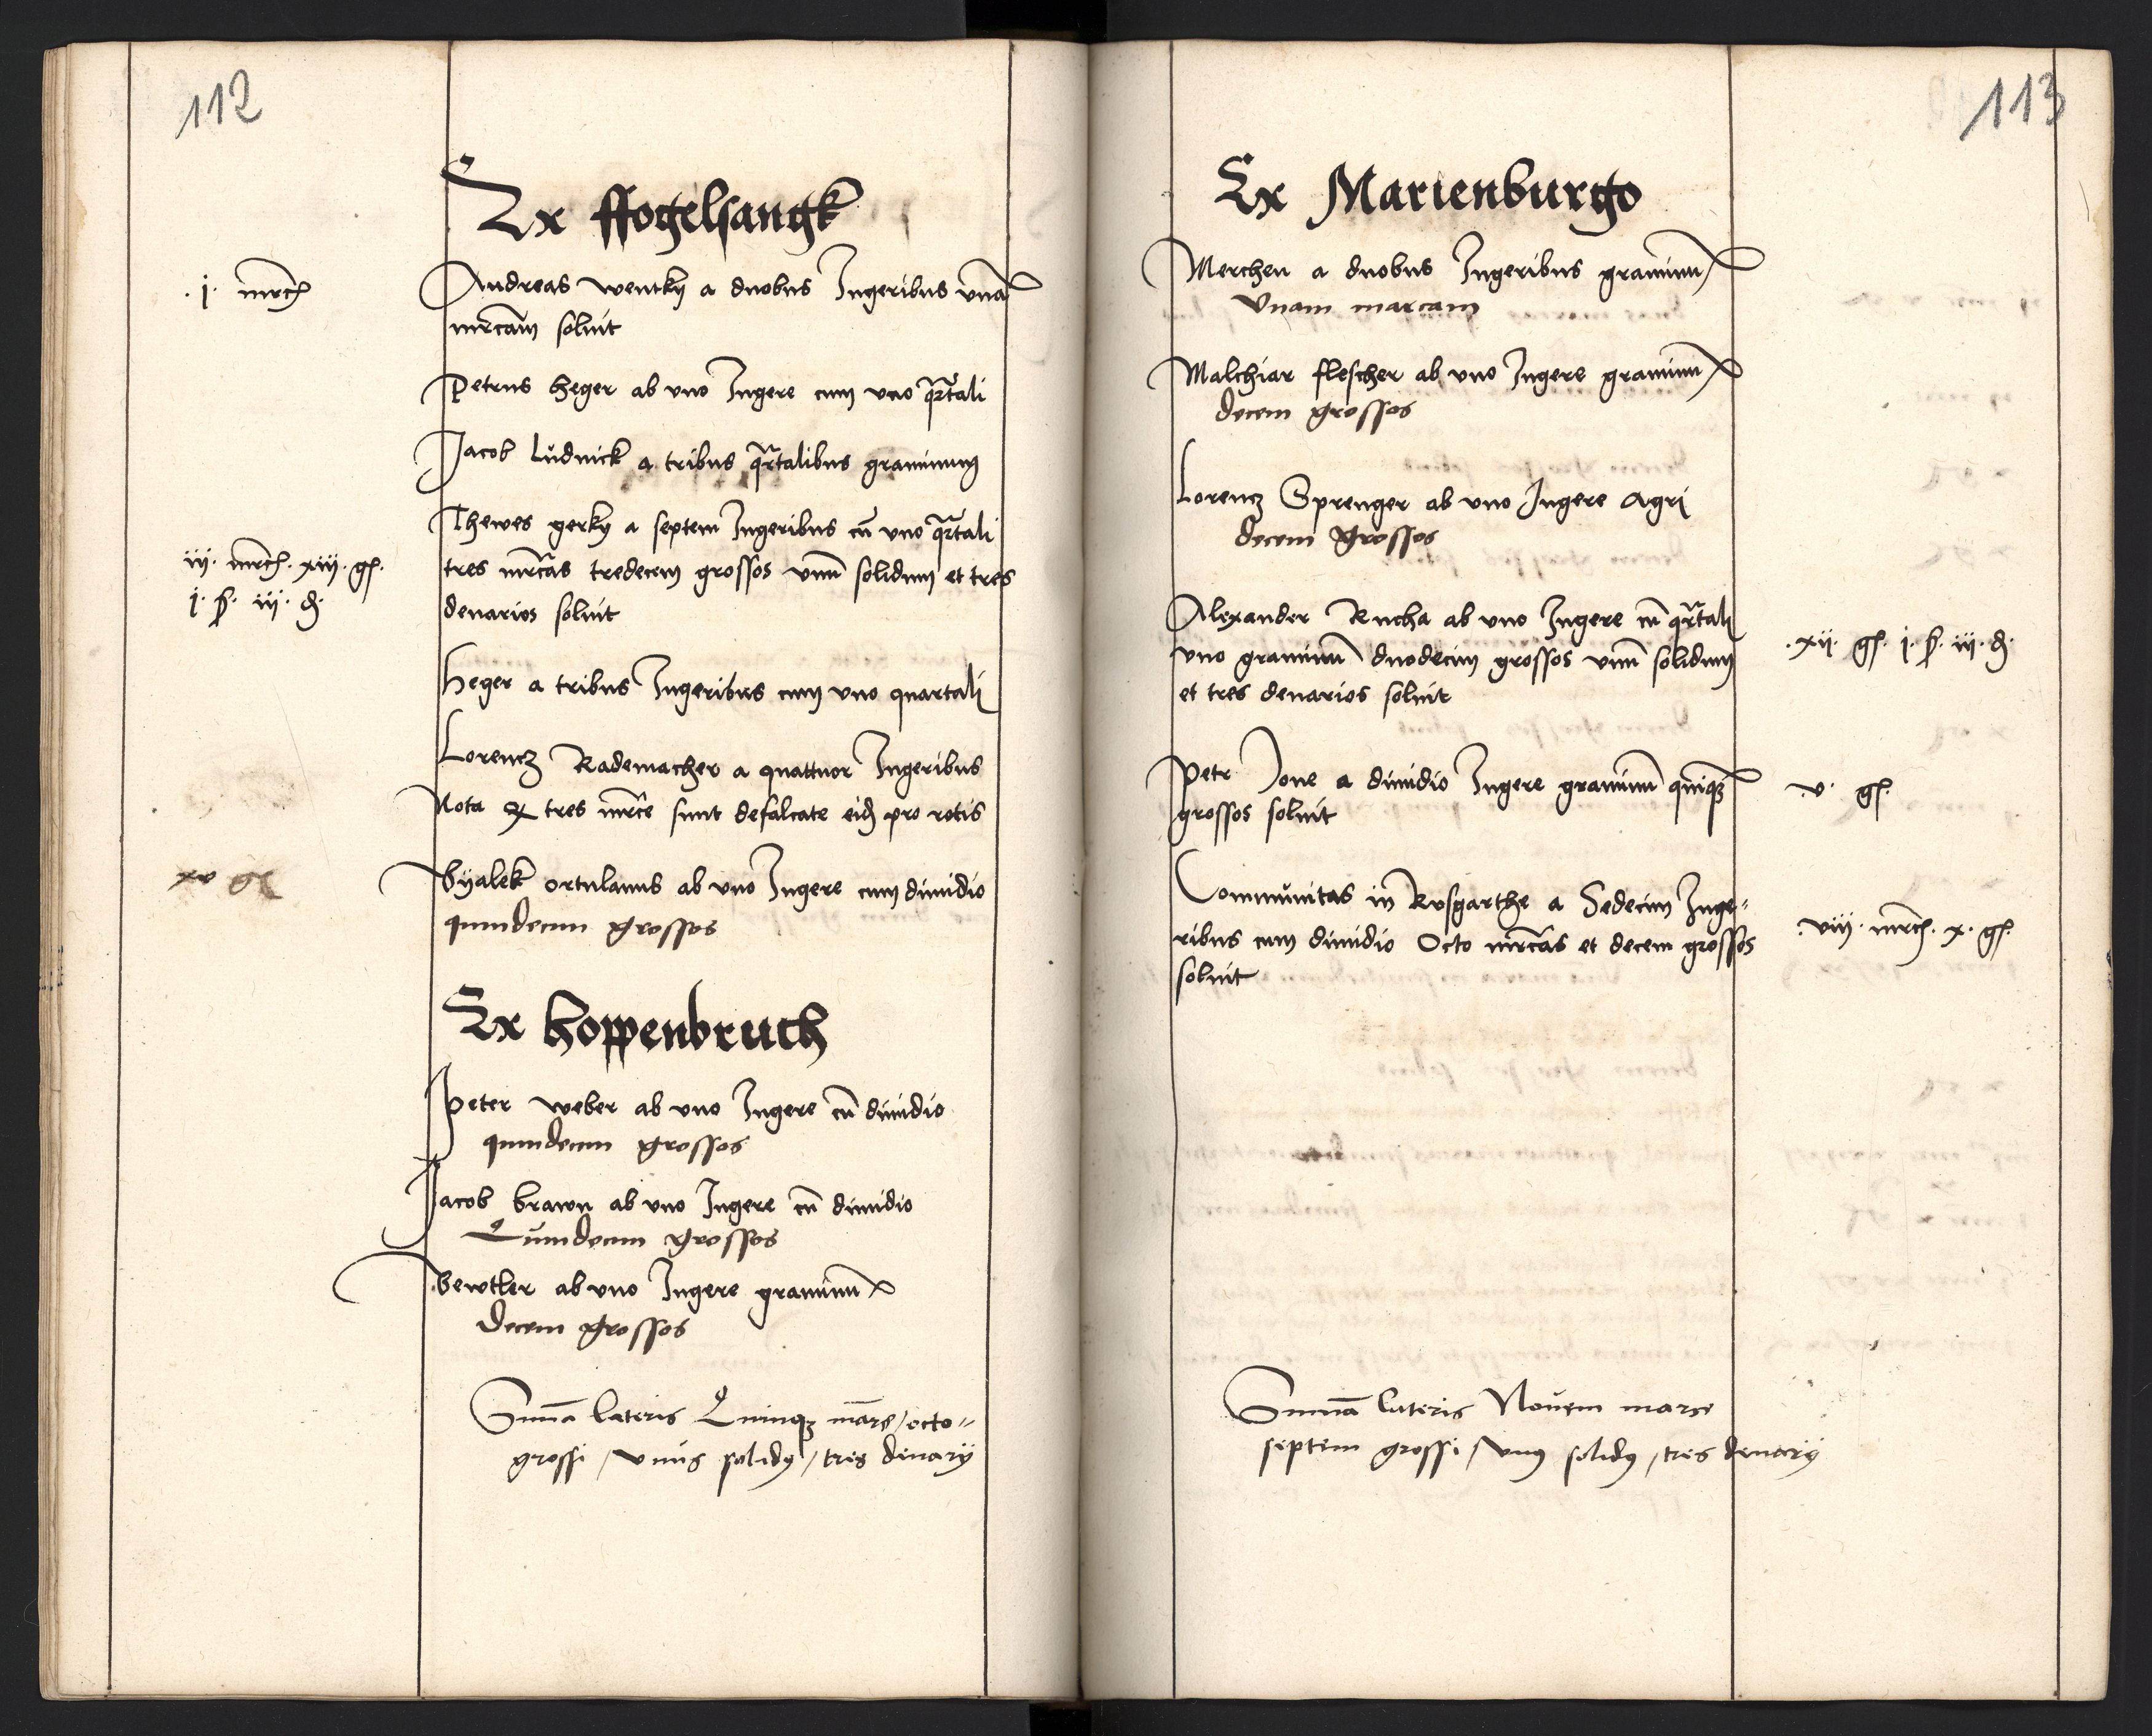 112
Ex ffogelsangk
.j. mrcz
Andreas wentky a duobus Iugeribus vna
mrcam soluit
Petrus heger ab vno Iugere cum vno qrtali
Jacob Ludnick a tribus qrtalibus graminum
Thewes gerky a septem Iugeribus cu vno qrtali
iij. mrcz. xiij. gs.
tres mrcas tredecem grossos vnu solidum et tres
j. s. iij. d.
denarios soluit
heger a tribus Iugeribus cum vno quartali
Lorencz Rademacher a quattuor Iugeribus
Nota q tres mrce sunt defalcate eid pro rotis
xv gs
Byalek ortulanus ab vno Iugere cum dimidio
quindecim grossos
Ex hoppenbruch
Peter weber ab vno Iugere cu dimidio
quindecim grossos
Jacob brawn ab vno Iugere cu dimidio
Quindecim grossos
bewtler ab vno Iugere graminu
Decem grossos
Suma lateris Quinqz marce / octo-
grossi / vnus solidus / tres denarij
113
Ex Marienburgo
Merchen a duobus Iugeribus graminu
Vnam marcam
Malchiar flescher ab vno Iugere graminu
decem grossos
Lorencz Sprenger ab vno Iugere Agri
decem grossos
Alexander Rucha ab vno Iugere cu qrtali
.xij. gs. j. s. iij. d.
vno graminu duodecim grossos vnu solidum
et tres denarios soluit
Petr Jone a dimidio Iugere graminu quinqz
.v. gs.
grossos soluit
Communitas in Rosgarthe a Sedecim Iuge-
ribus cum dimidio Octo mrcas et decem grossos
.viij. mrcz. x. gs.
soluit
Suma lateris Nouem marce
septem grossi / vnus solidus / tres denarij